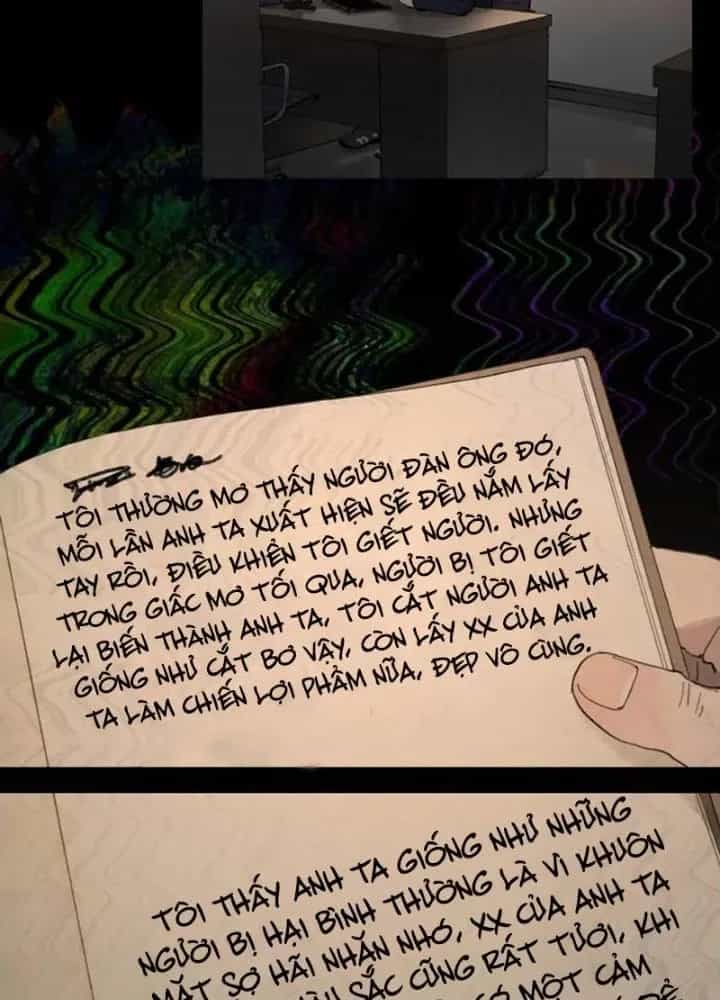 TÔI THƯỜNG MƠ THẤY NGƯỜI ĐÀN ÔNG ĐÓ,
MỖI LẦN ANH TA XUẤT HIỆN SẼ ĐỀU NẮM LẤY
TAY RỒI, ĐIỀU KHIỂN TÔI GIẾT NGƯỜI. NHƯNG
TRONG GIẤC MƠ TỐI QUA, NGƯỜI BỊ TÔI GIẾT
LẠI BIẾN THÀNH ANH TA, TÔI CẮT NGƯỜI ANH TA
GIỐNG NHƯ CẮT BƠ VẬY, CÒN LẤY XX CỦA ANH
TA LÀM CHIẾN LỢI PHẨM NỮA, ĐẸP VÔ CÙNG.
TÔI THẤY ANH TA GIỐNG NHƯ NHỮNG
NGƯỜI BỊ HẠI BÌNH THƯỜNG LÀ VÌ KHUÔN
MẶT SỢ HÃI NHĂN NHÓ, XX CỦA ANH TA
SẮC CŨNG RẤT TƯƠI, KHI
CÓ MỘT CẢM